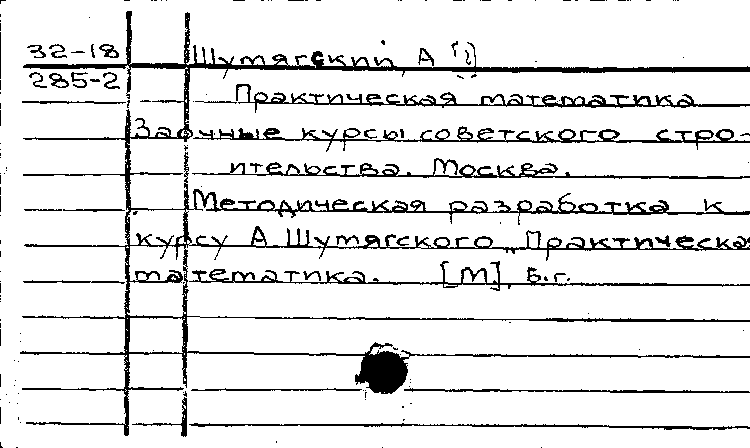 32-18 Шутягский, А
285-2
Практическая математика
Заочные курсы советского стро-
ительства. Москва.
Методическая разработка к
курсу А. Шутягского „Практическая
математика. [М], б.г.